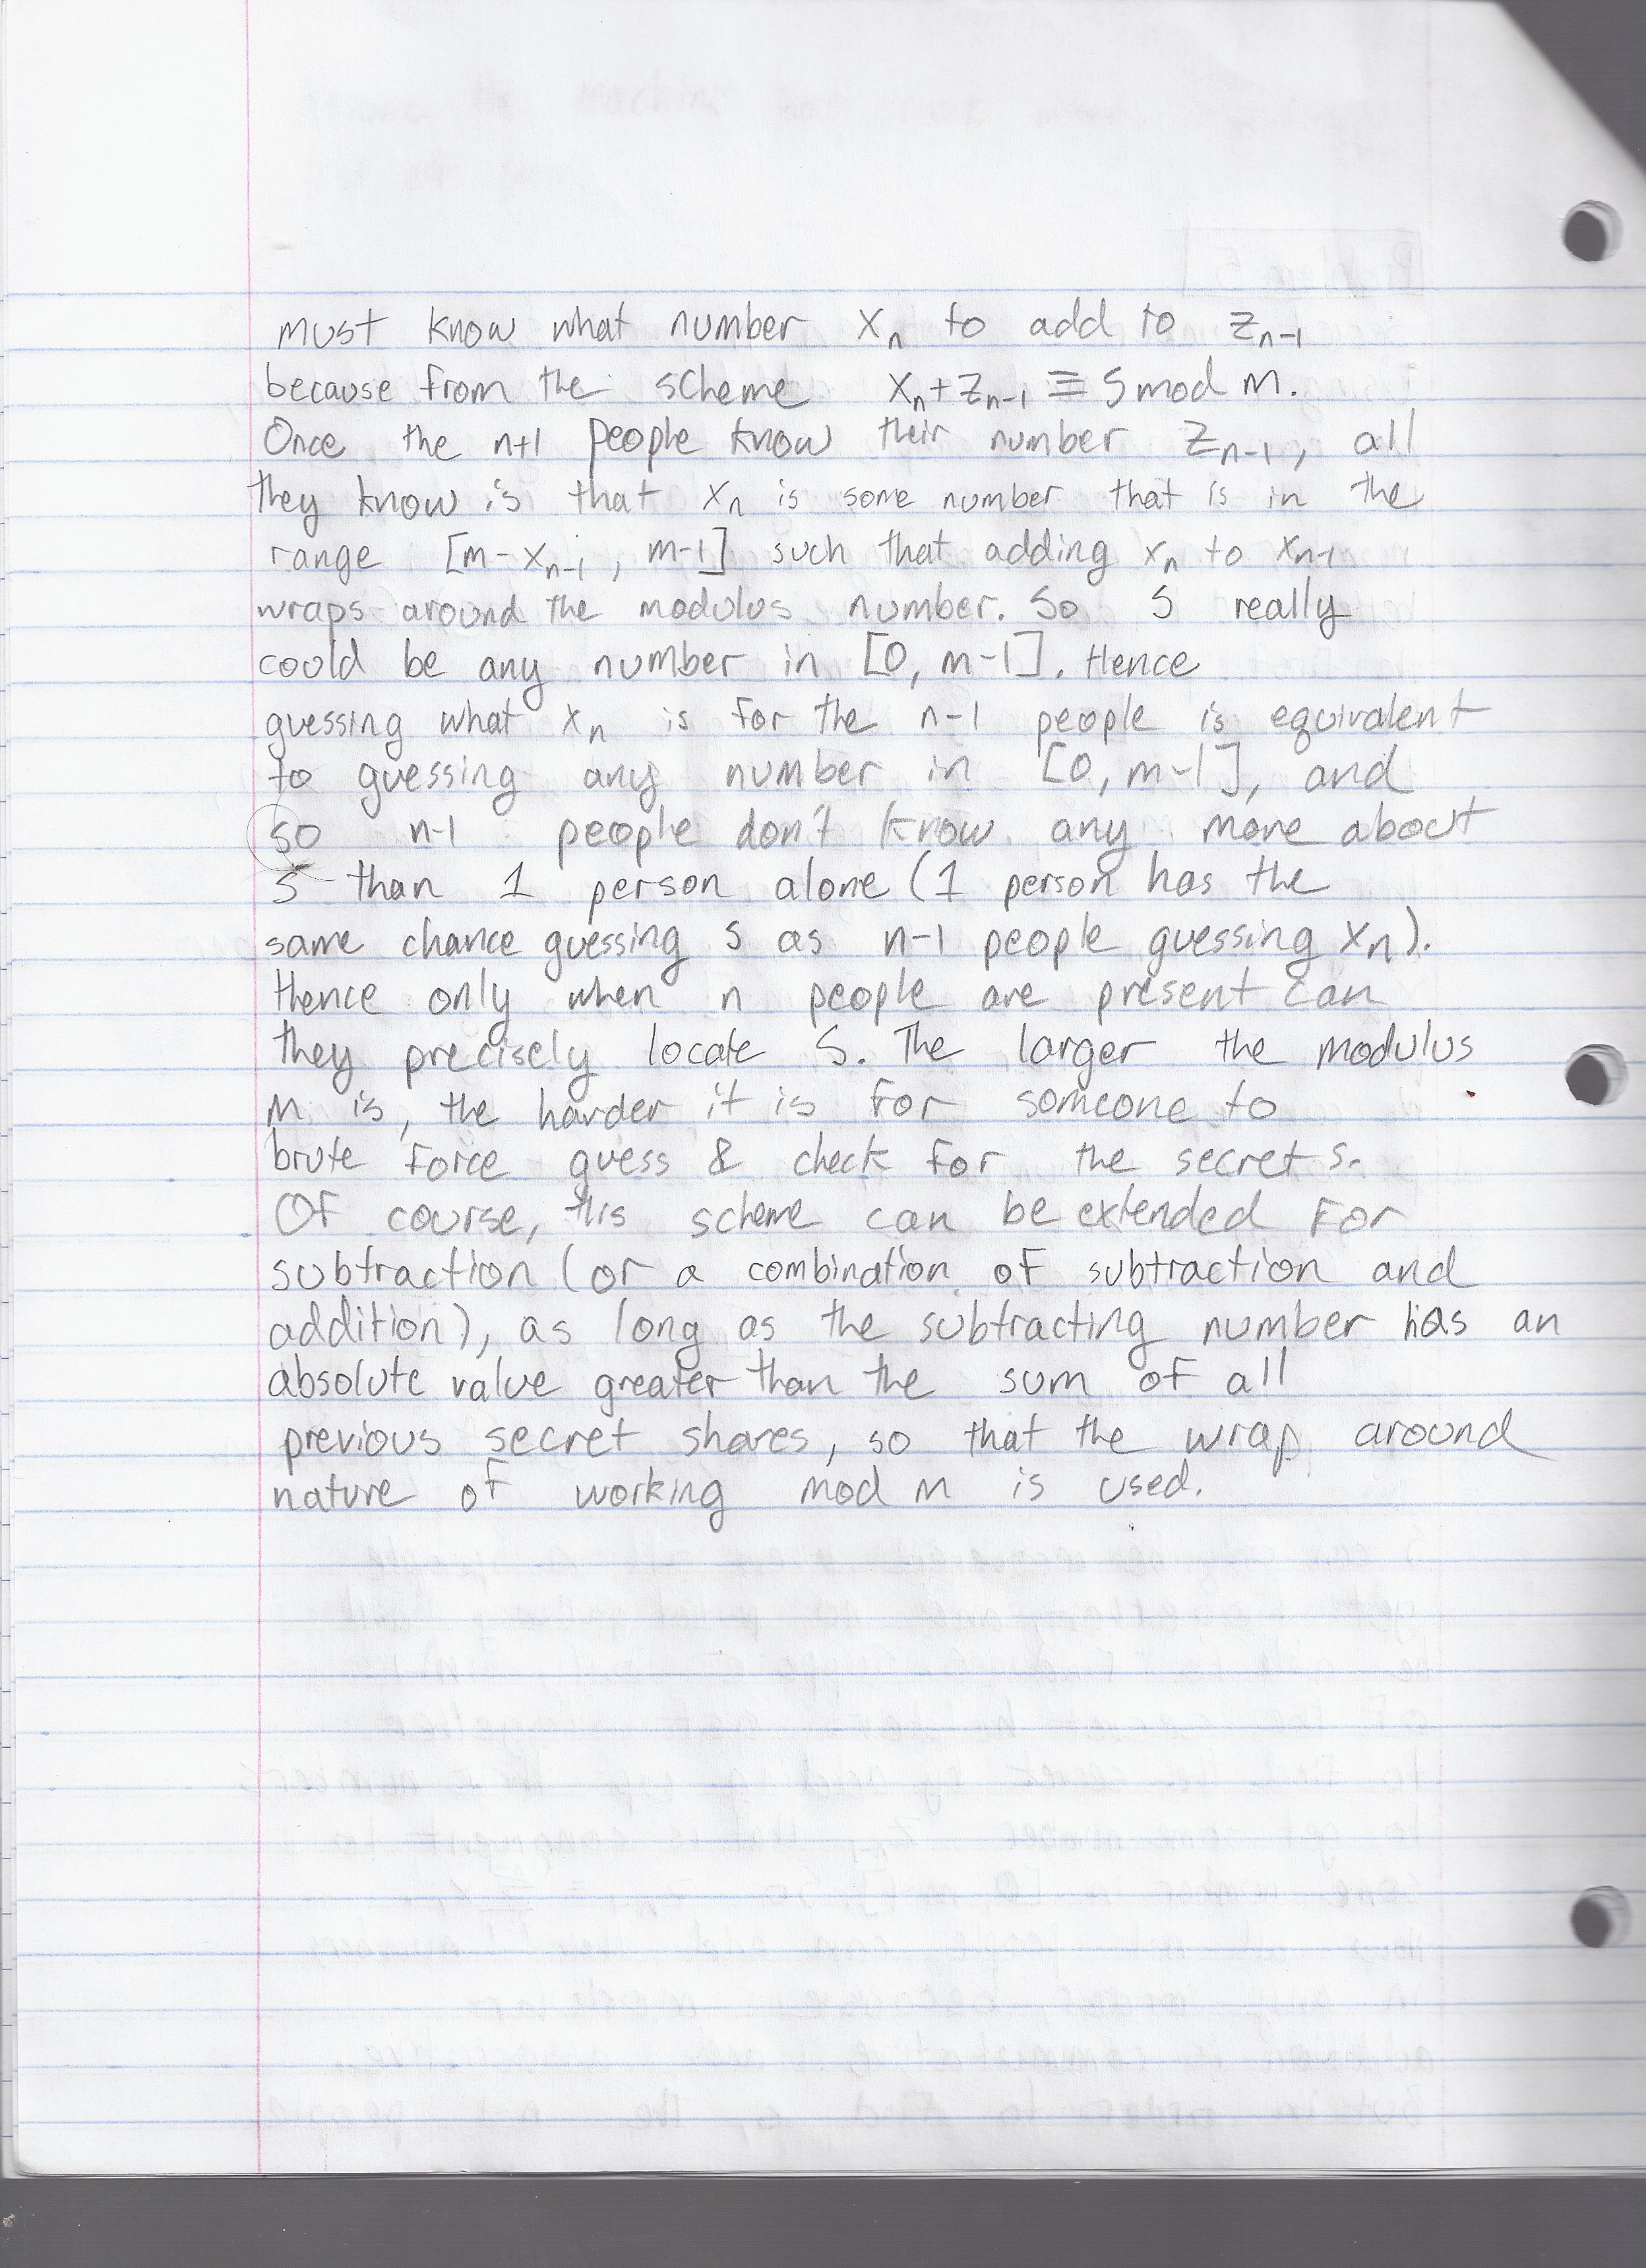 must know what number xₙ to add to zₙ₋₁
because from the scheme xₙ+zₙ₋₁ ≡ S mod m.
Once the n+1 people know their number zₙ₋₁, all
they know is that xₙ is some number that is in the
range [m-xₙ₋₁, m-1] such that adding xₙ to xₙ₋₁
wraps around the modulus number. So S really
could be any number in [0, m-1]. Hence
guessing what xₙ is for the n-1 people is equivalent
to guessing any number in [0, m-1], and
so n-1 people don't know any more about
S than 1 person alone (1 person has the
same chance guessing S as n-1 people guessing xₙ).
Hence only when n people are present can
they precisely locate S. The larger the modulus
m is, the harder it is for someone to
brute force guess & check for the secret s.
Of course, this scheme can be extended for
subtraction (or a combination of subtraction and
addition), as long as the subtracting number has an
absolute value greater than the sum of all
previous secret shares, so that the wrap around
nature of working mod m is used.